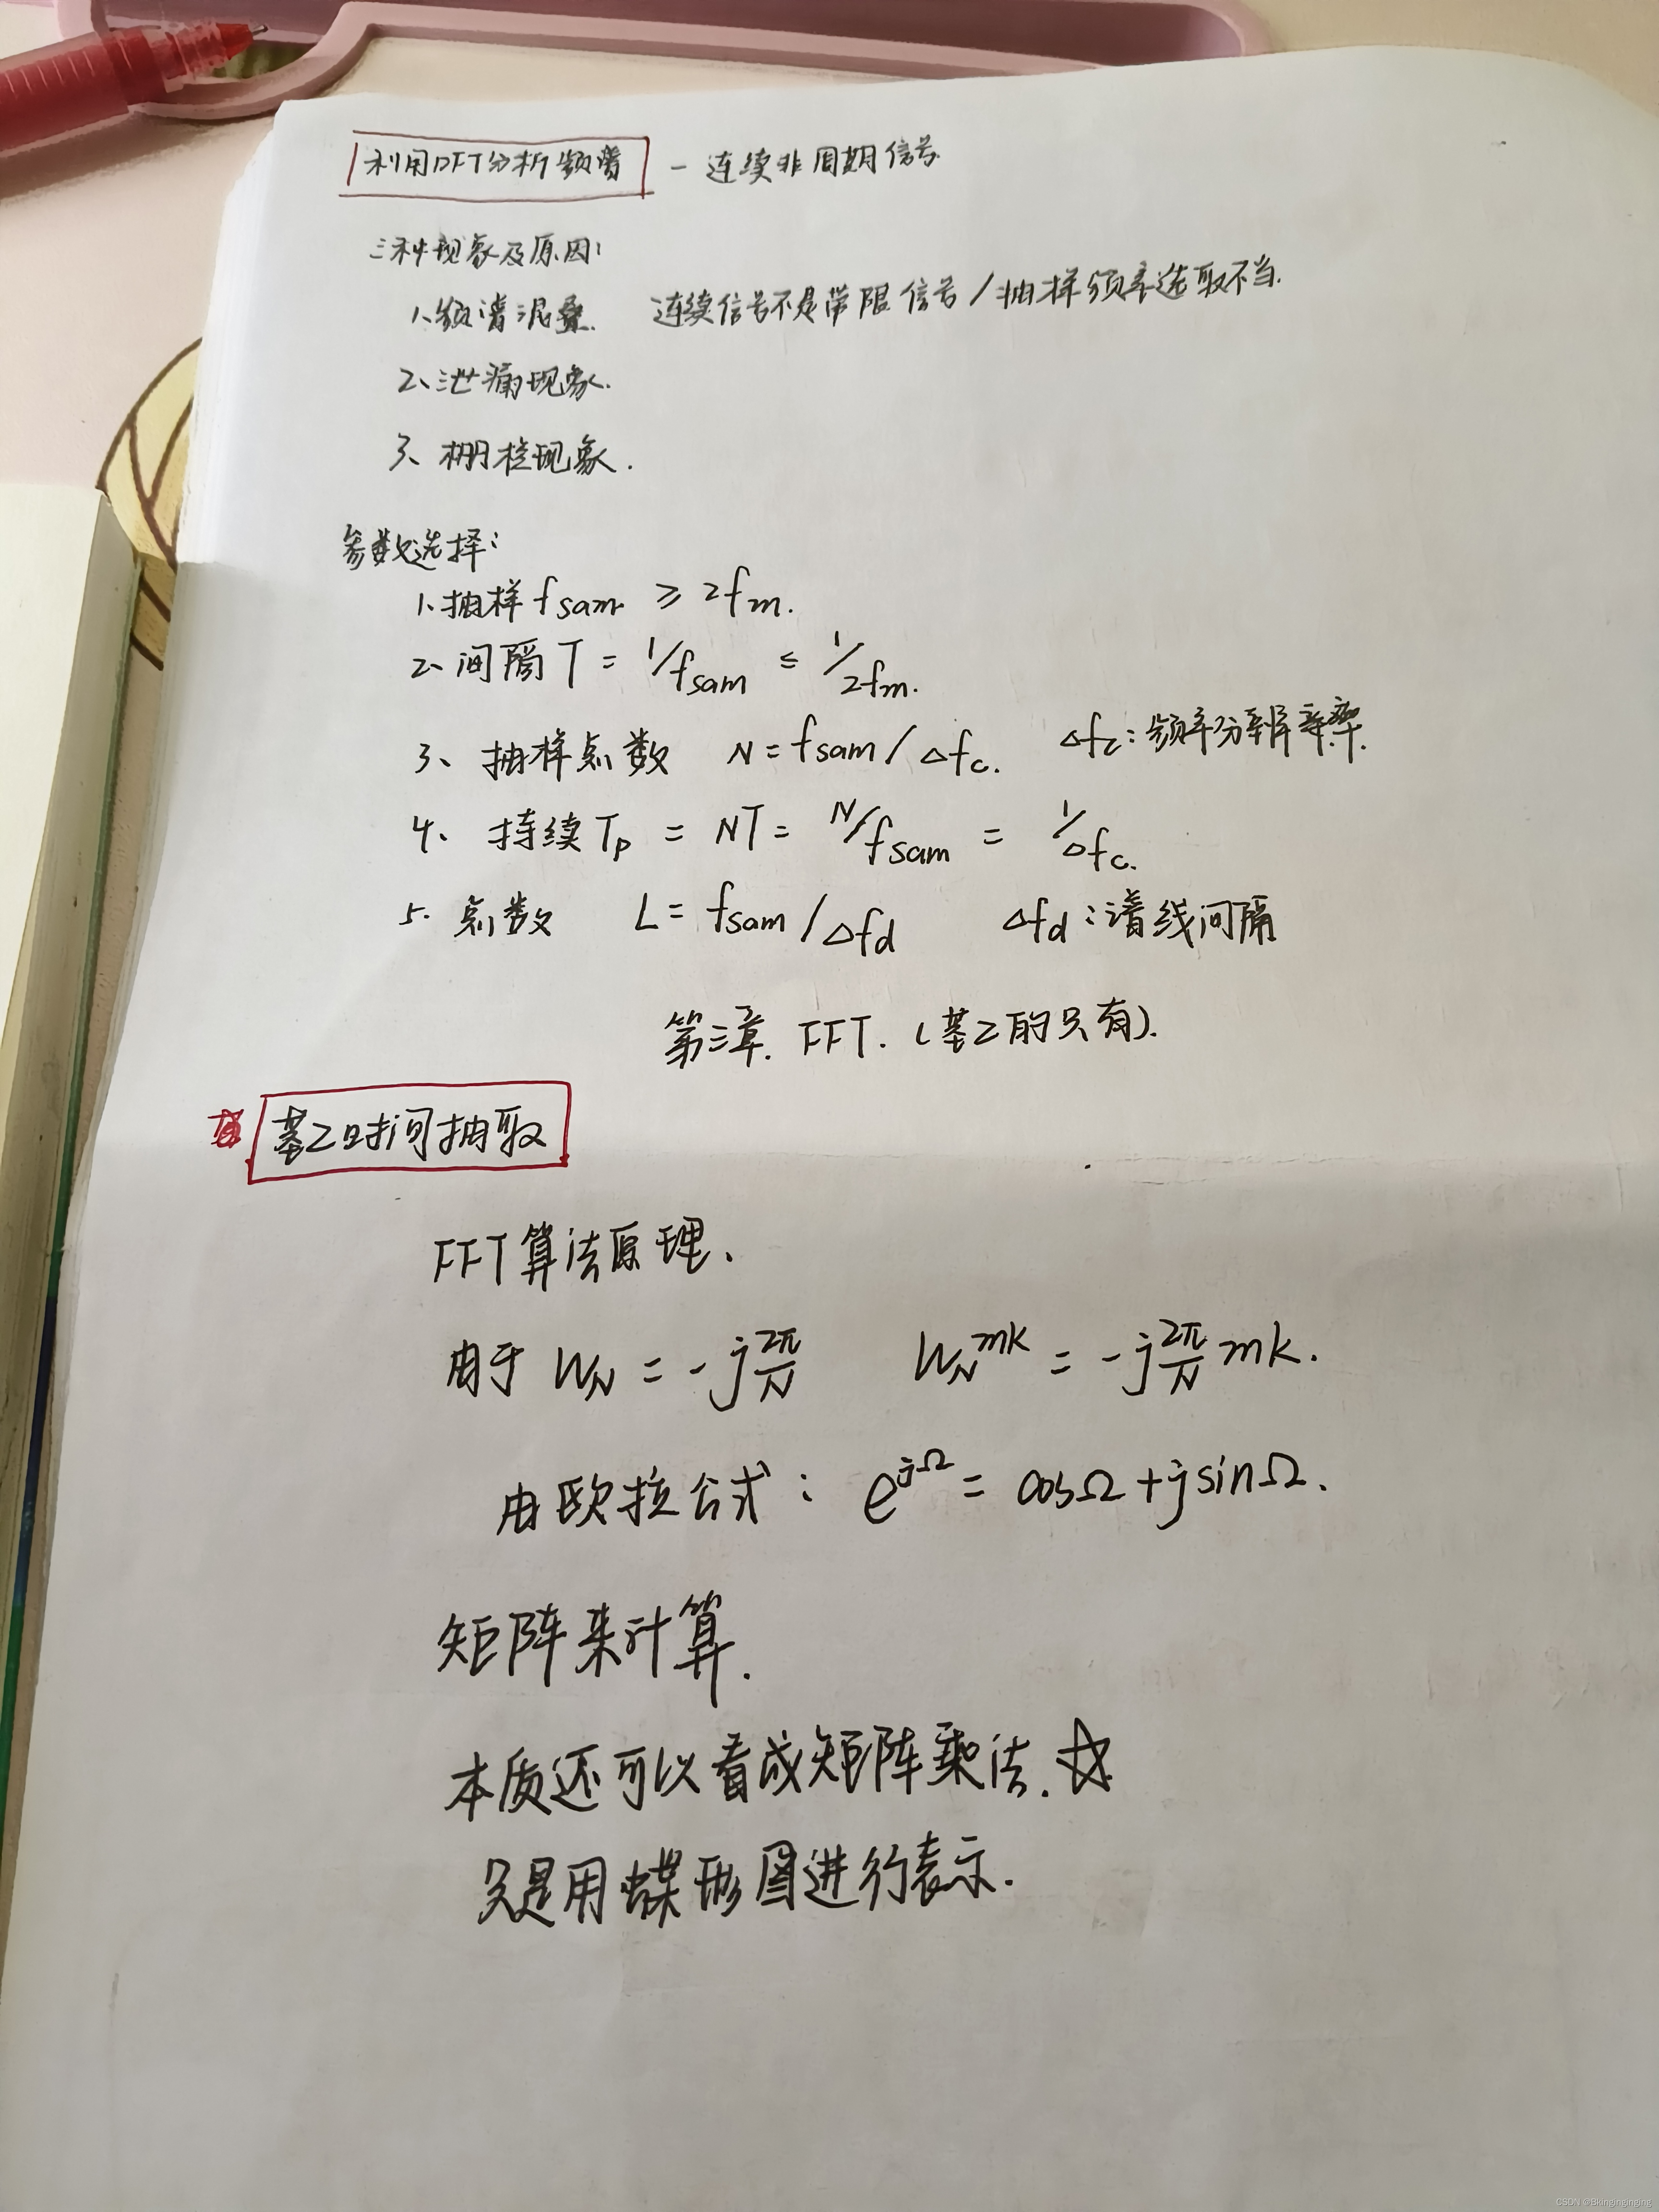 利用DFT分析频谱 — 连续非周期信号
三种现象及原因:
1、频谱混叠. 连续信号不是带限信号/抽样频率选取不当.
2、泄漏现象.
3、栅栏现象.
参数选择:
1、抽样 fsam ≥ 2fm.
2、间隔 T = 1/fsam ≤ 1/2fm.
3、抽样点数 N = fsam/Δfc. Δfc:频率分辨率.
4、持续 Tp = NT = N/fsam = 1/Δfc.
5. 点数 L = fsam/Δfd Δfd:谱线间隔
第三章. FFT. (基2的只有).
基2时间抽取
FFT算法原理、
由于 WN = -j2π/N WN^mk = -j2π/N mk.
由欧拉公式: e^jΩ = cosΩ + jsinΩ.
矩阵来计算.
本质还可以看成矩阵乘法. ☆
只是用蝶形图进行表示.
CSDN @Bkinginginging